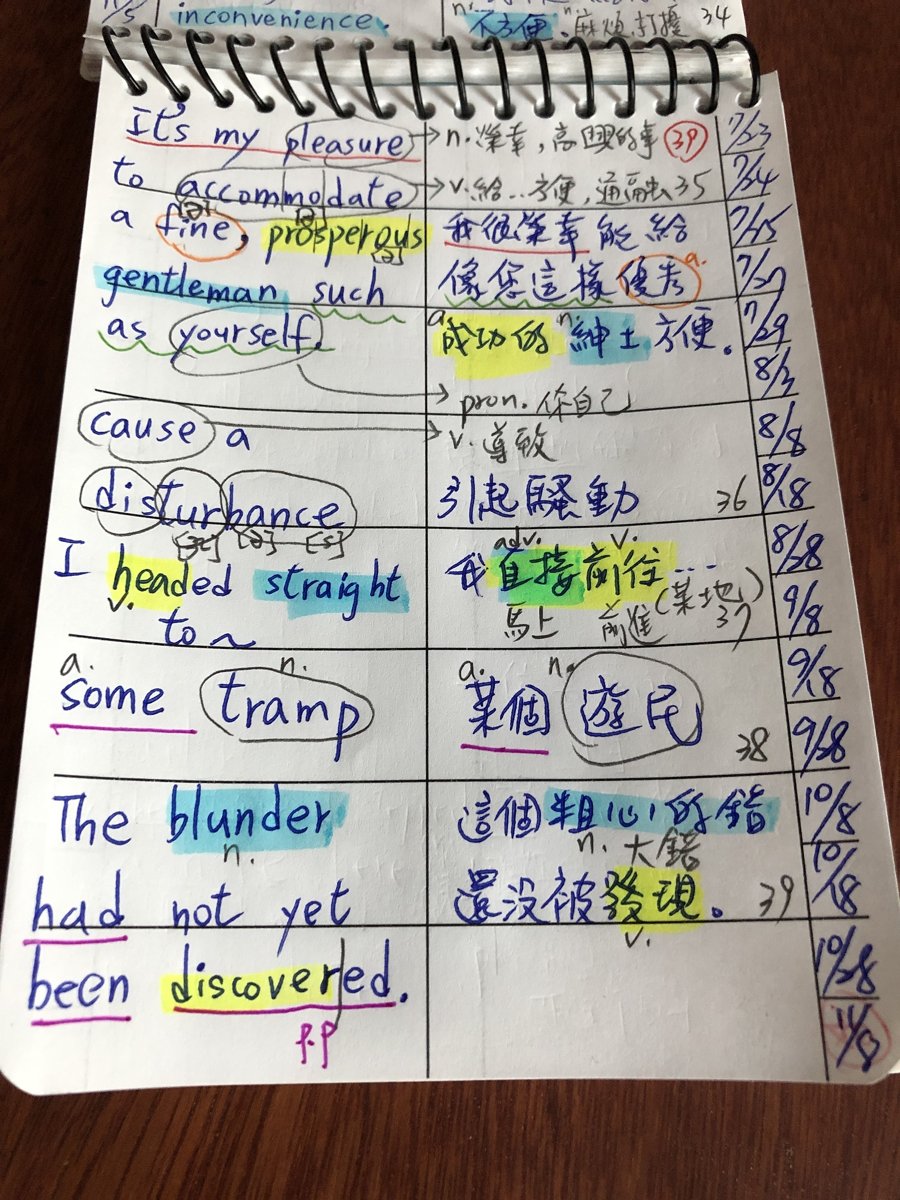 inconvenience.
n. 不方便 n. 麻煩,打擾 34
It's my pleasure → n. 榮幸, 高興的事 39 7/23
to accommodate → v. 給...方便, 通融 35 7/24
[ə] [ə]
a fine, prosperous 我很榮幸能給 7/25
[ə]
gentleman such 像您這樣優秀 a. 7/27
a. n.
as yourself. 成功的 紳士方便。 7/29
→ pron. 你自己 8/3
cause a → v. 導致 8/8
disturbance 引起騷動 36 8/18
[ɝ] [ə] [s]
adv. v.
I headed straight 我直接前往... 8/28
v. 馬上 前進(某地) 37
to ~ 9/8
a. n. a. n.
some tramp 某個 遊民 38 9/18
9/28
The blunder 這個粗心的錯 10/8
n. n. 大錯
had not yet 還沒被發現。 39 10/18
v.
been discovered. 10/28
p.p 11/8